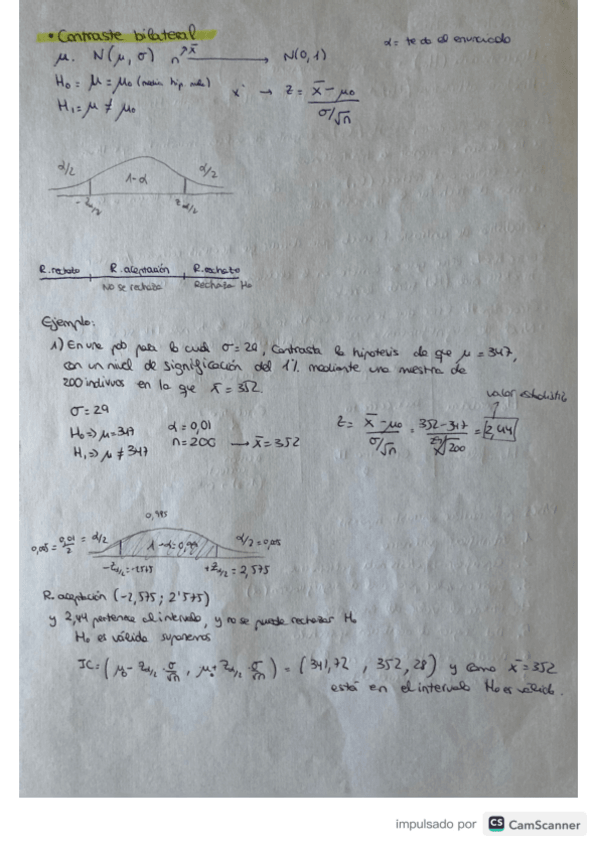 • Contraste bilateral
α = te da el enunciado
μ. N(μ, σ) n→x̄ → N(0,1)
H₀ = μ = μ₀ (media hip nula)
H₁ = μ ≠ μ₀
x̄ → z = x̄ - μ₀ / σ/√n
α/2 1-α α/2
-Zα/2 Zα/2
R. rechazo R. aceptación R. rechazo
No se rechaza Rechaza H₀
Ejemplo:
1) En una pob para la cual σ = 29, contrasta la hipotesis de que μ = 347,
con un nivel de significación del 1% mediante una muestra de
200 indivuos en la que x̄ = 352.
valor estadístic
σ = 29
H₀ => μ = 347 α = 0,01
H₁ => μ ≠ 347 n = 200 → x̄ = 352
Z = x̄ - μ₀ / σ/√n = 352 - 347 / 29/√200 = 2,44
0,995
0,005 = 0,01/2 = α/2 1-α = 0,99 α/2 = 0,005
-Zα/2 = -2,575 +Zα/2 = 2,575
R. aceptación (-2,575; 2'575)
y 2,44 pertenece al intervalo, y no se puede rechazar H₀
H₀ es válido suponemos
IC: (μ₀ - Zα/2 · σ/√n , μ₀ + Zα/2 · σ/√n) = (341,72 , 352,28) y como x̄ = 352
está en el intervalo H₀ es válido.
impulsado por CS CamScanner